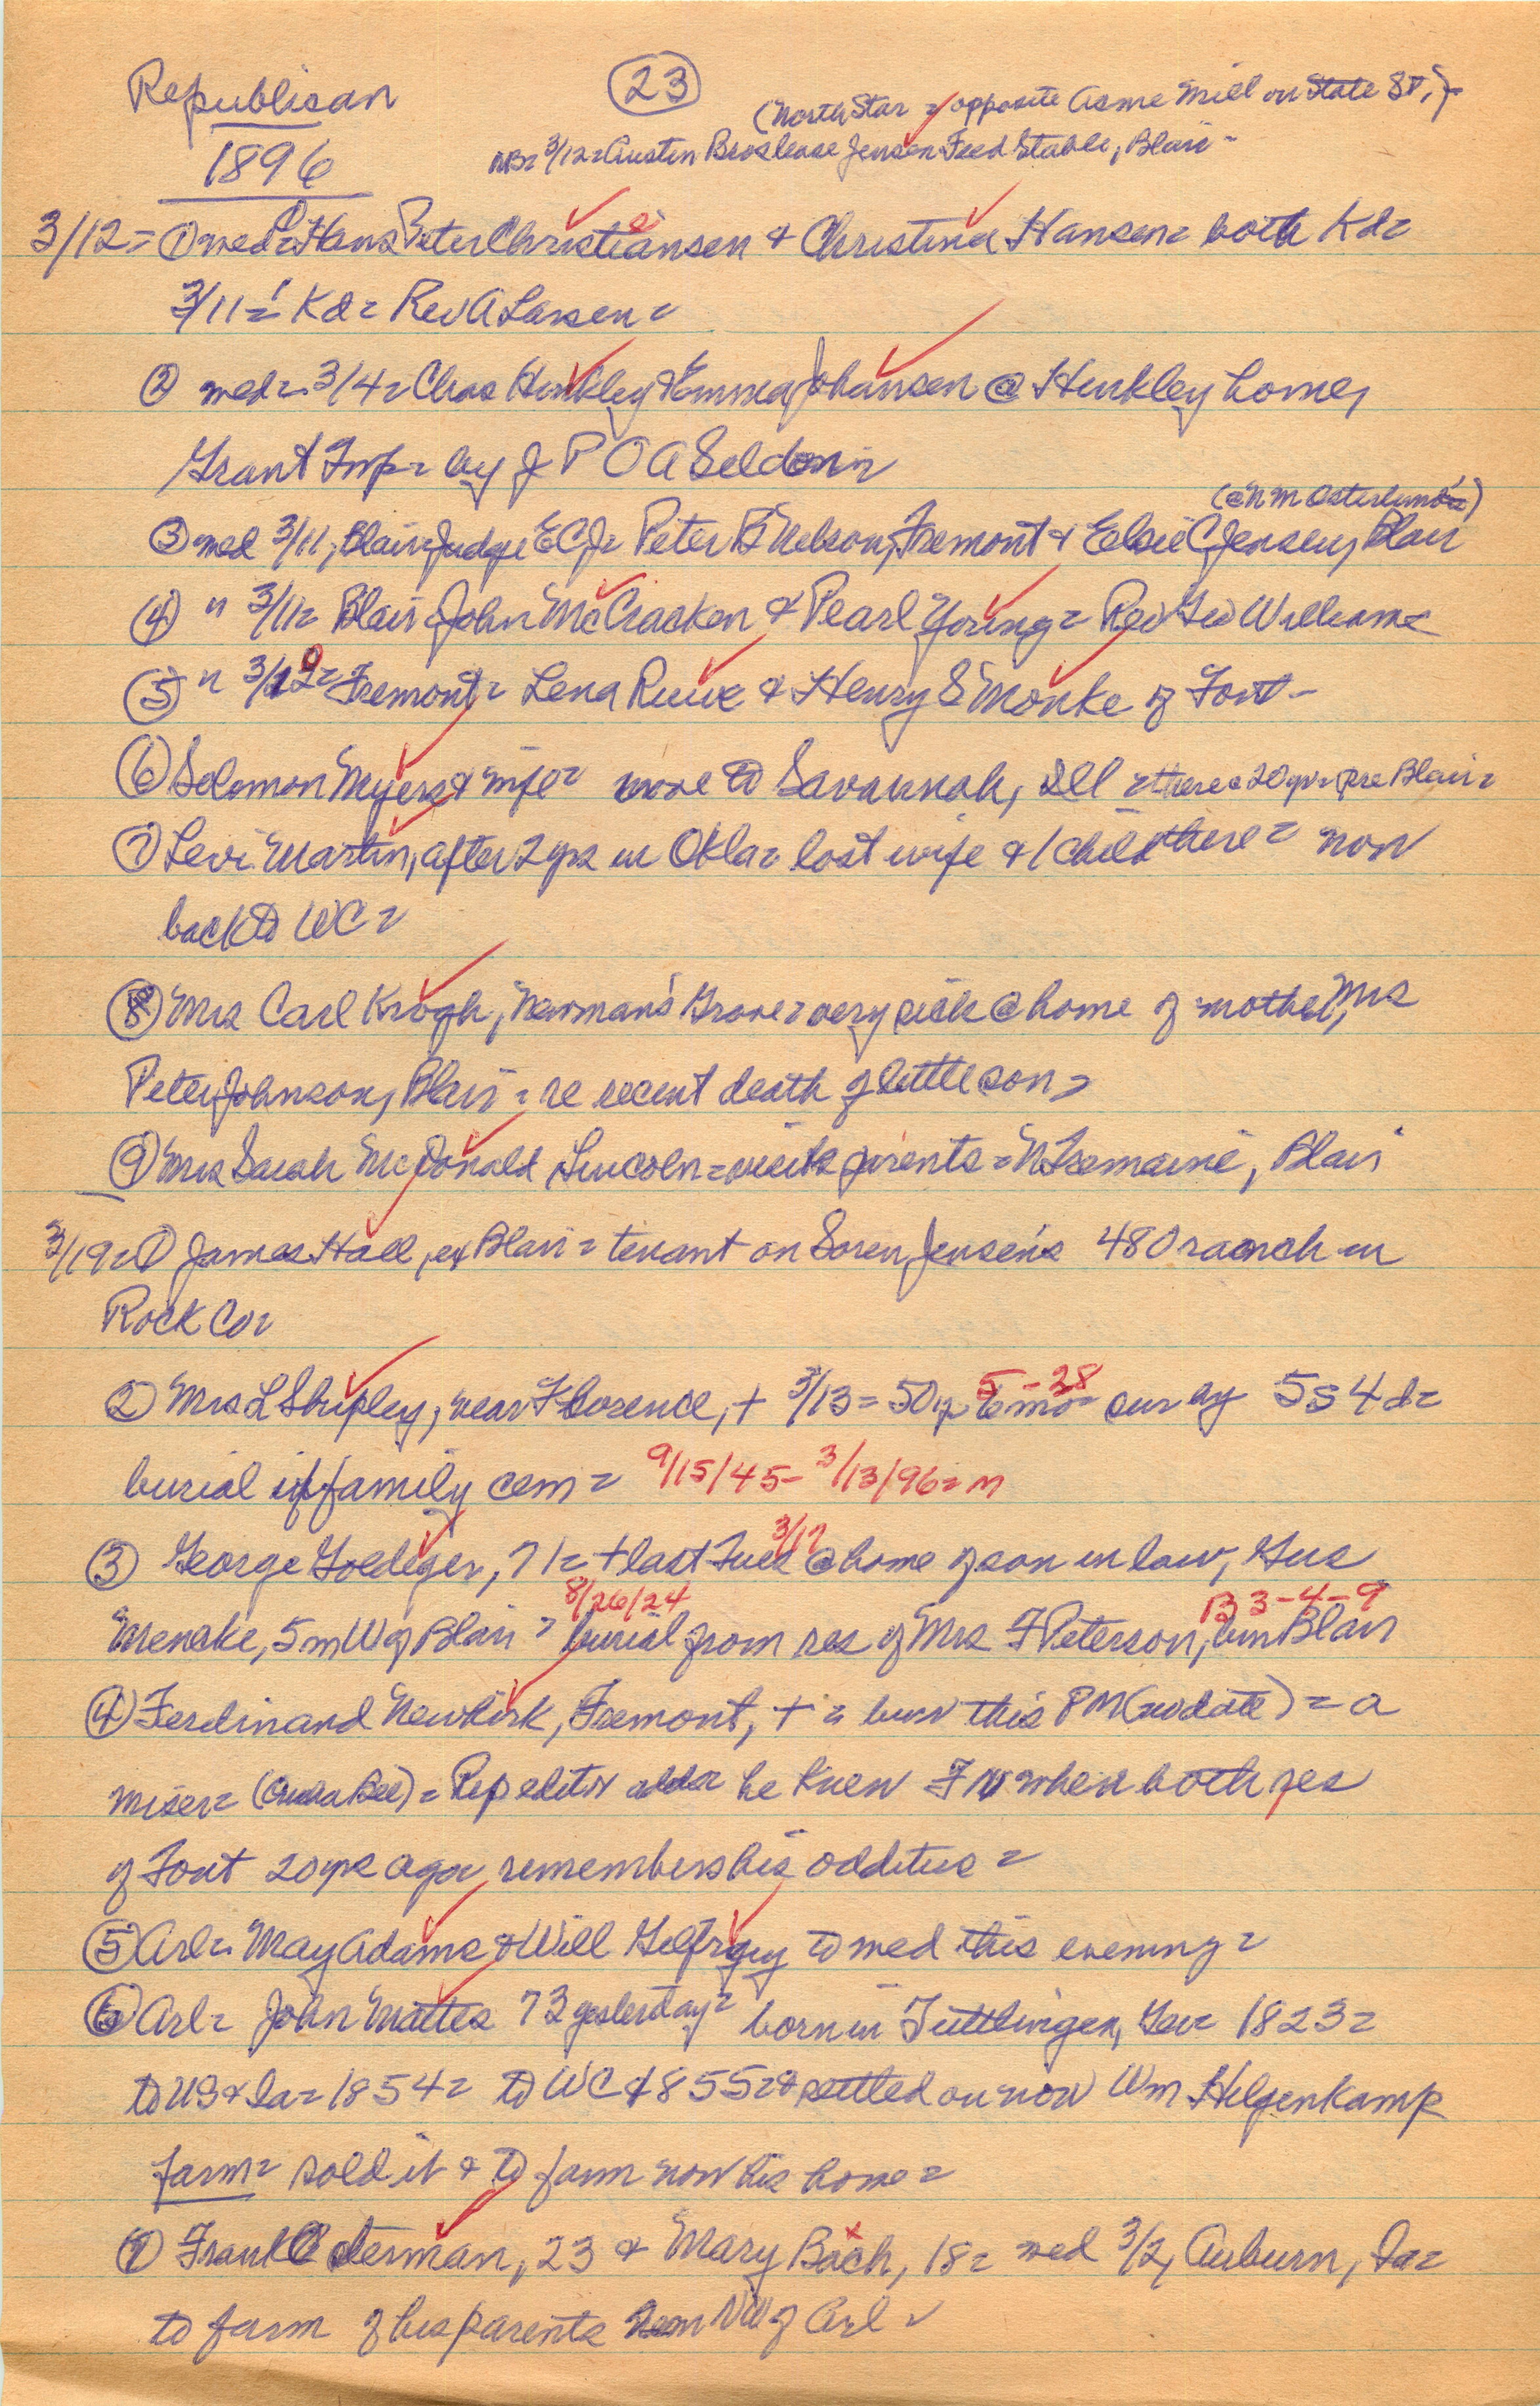 Republican
1896
23
(North Star = opposite Acme Mill on State St.)-
NB= 3/12= Austin Bros lease Jensen Feed Stable, Blair-
3/12= ① wed= Hans Peter Christiansen & Christina Hansen= both Kd=
3/11= Kd= Rev A Larsen=
② wed= 3/4= Chas Hinkley & Emma Johansen @ Hinkley home,
Grant Twp= by J P O A Seldon=
(@ N M Osterlund's)
③ wed 3/11, Blair= Judge ECJ= Peter B Nelson, Fremont & Elsie C Jensen, Blair
④ " 3/11= Blair= John McCracken & Pearl Young= Rev Geo Williams
⑤ " 3/12= Fremont= Lena Ruwe & Henry S Monke of Font-
⑥ Solomon Myers & wife= move to Savannah, Ill = there 20 yr= pre Blair=
⑦ Levi Martin, after 2 yrs in Okla= lost wife & 1 child there= now
back to WC=
⑧ Mrs Carl Krogh, Newman's Grove= very sick @ home of mother, Mrs
Peter Johnson, Blair = re recent death of little son=
⑨ Mrs Sarah McDonald Lincoln= visits parents= N Tremaine, Blair
3/19= ① James Hall, ex Blair= tenant on Soren Jensen's 480 ranch in
Rock Co=
② Mrs L Shipley, near Florence, + 3/13= 50 y 6 mo= 5-28 sur by 5s 4d=
burial in family cem= 9/15/45- 3/13/96= m
③ George Goediger, 71= + last Tues 3/17 @ home of son in law, Gus
8/26/24 B 3-4-9
Mencke, 5 m W of Blair = burial from res of Mrs F Peterson, bur Blair
④ Ferdinand Newkirk, Fremont, + = bur this PM (no date) = a
miser= (Omaha Bee) = Rep editor adds he knew FN when both res
of Font 20 yrs ago, remembers his oddities=
⑤ Arl= May Adams & Will Gilfrey to wed this evening=
⑥ Arl= John Mattes 73 yesterday= born in Tuttlingen, Ger= 1823=
to US & Ia= 1854= to WC 1855= & settled on now Wm Hilgenkamp
farm= sold it & to farm now his home=
⑦ Frank Osterman, 23 & Mary Bach, 18= wed 3/2, Auburn, Ia=
to farm of his parents NW of Arl=